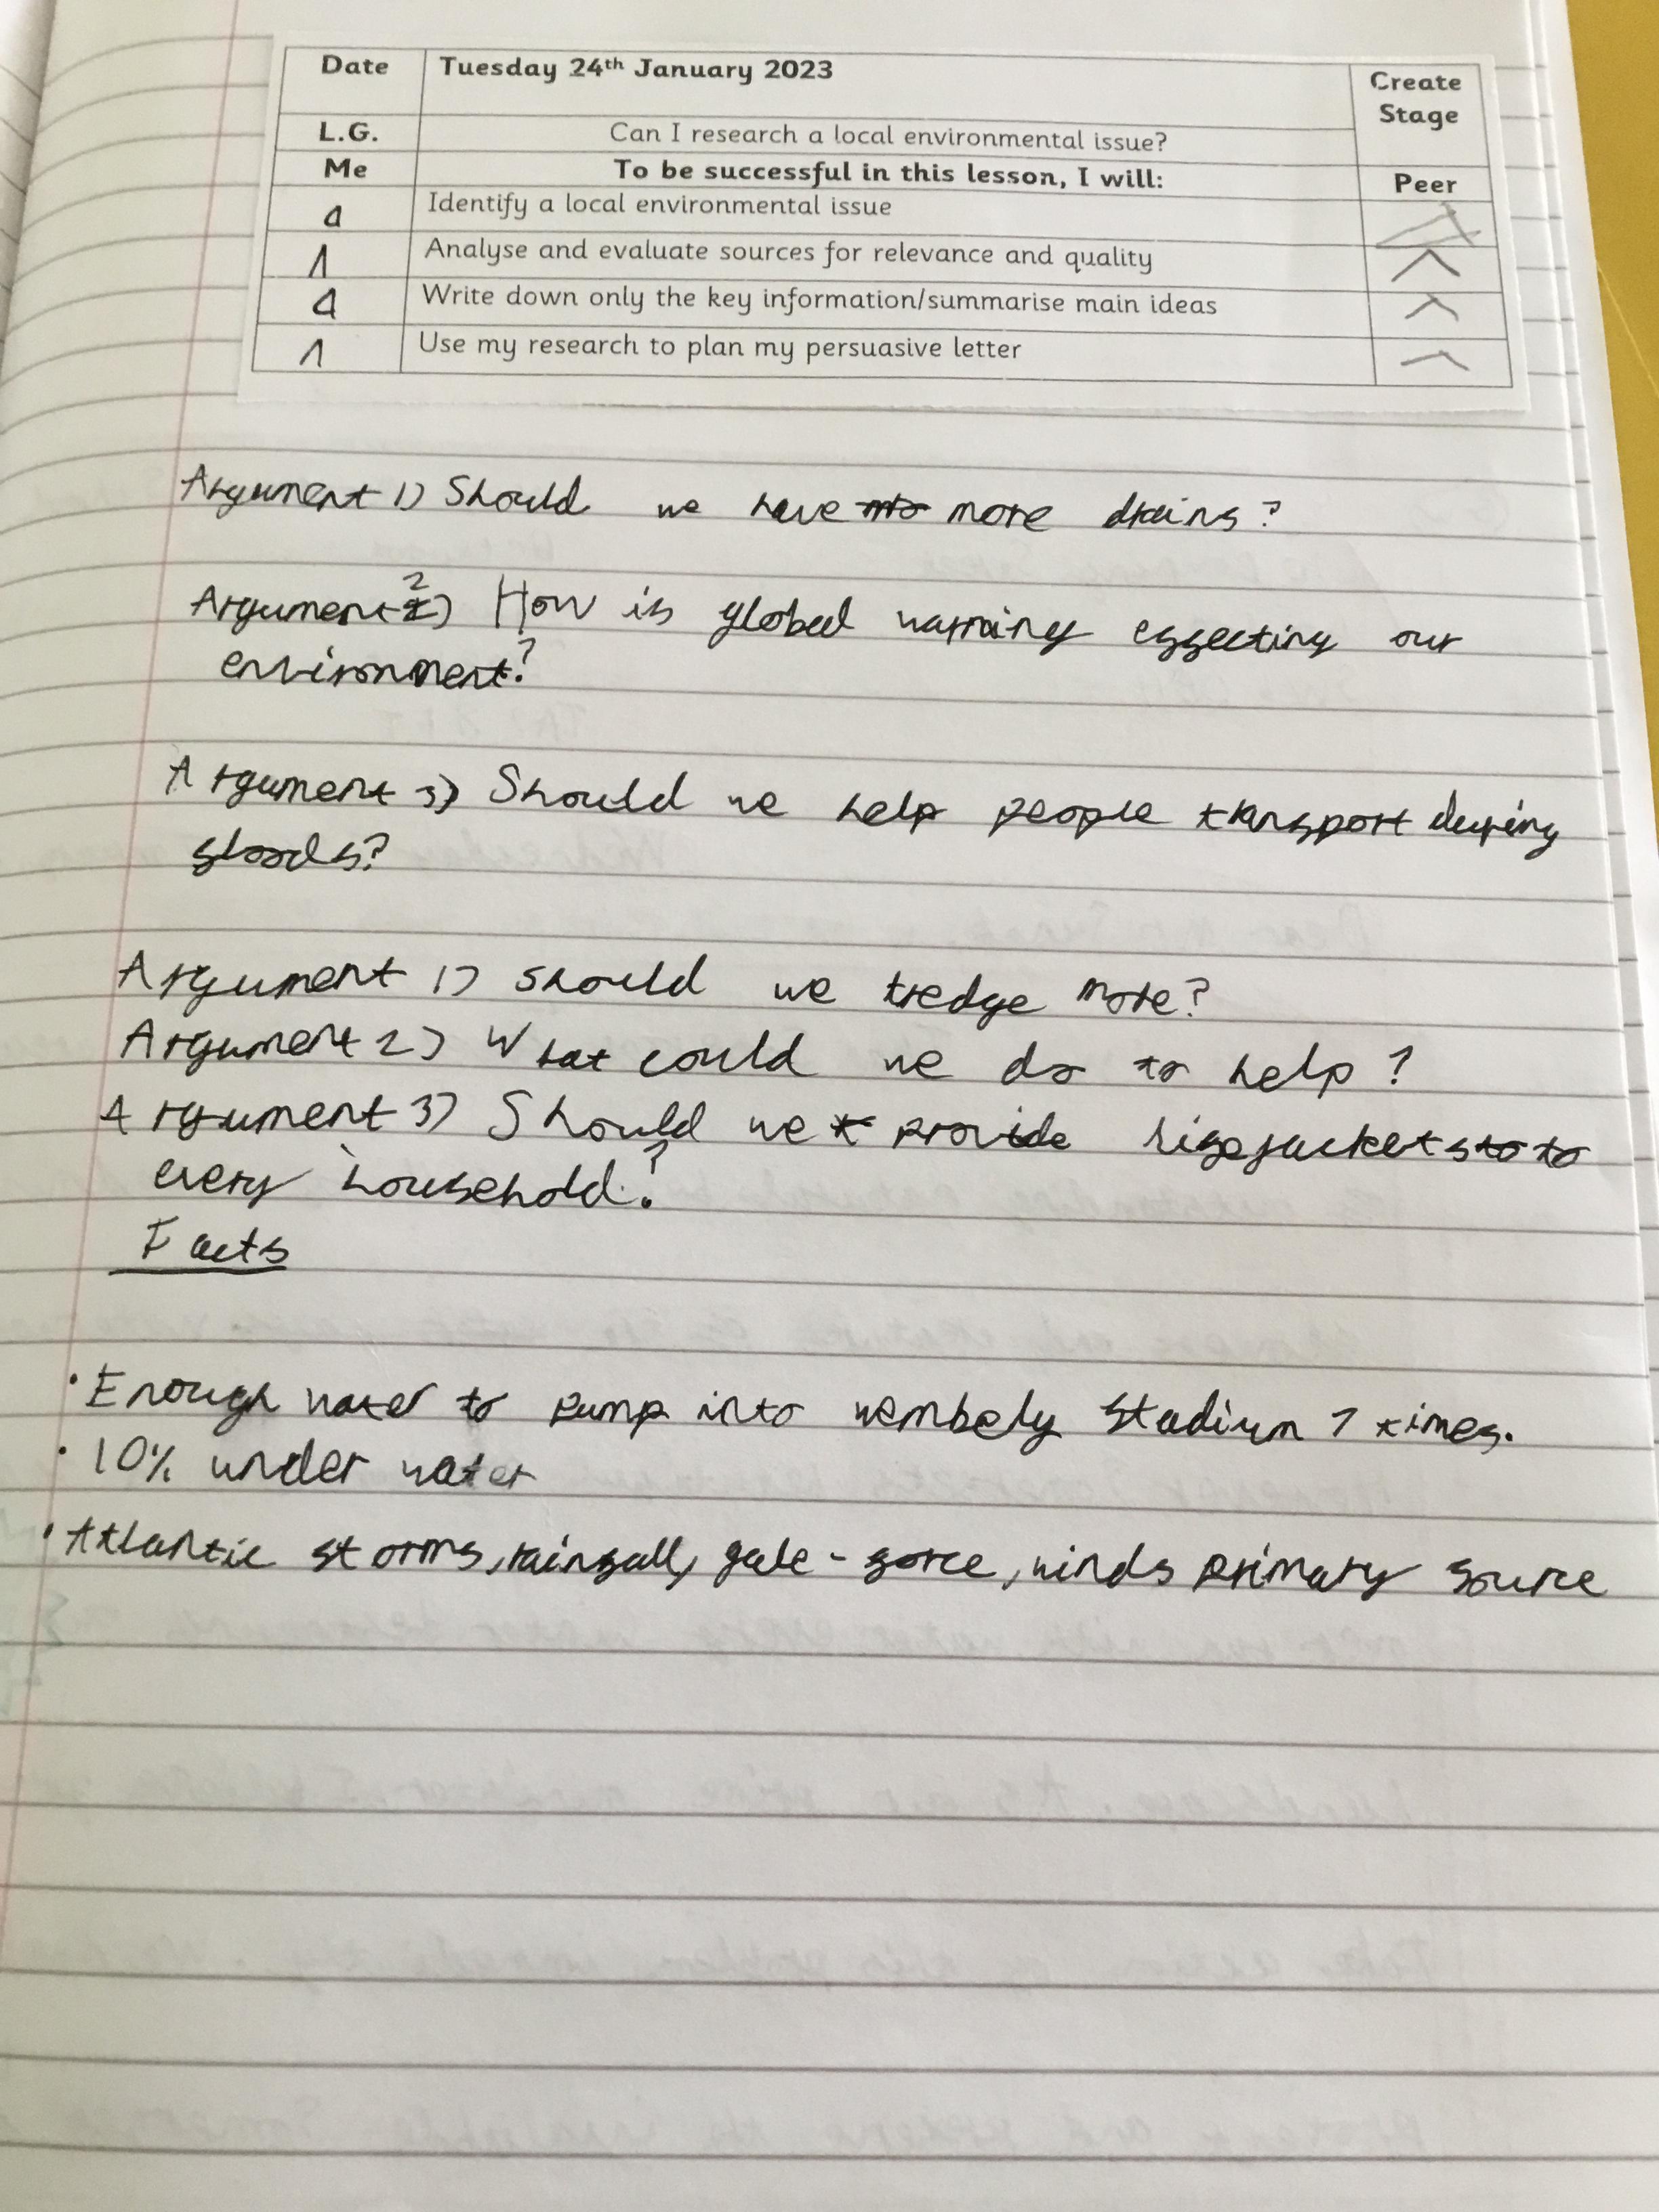 Date Tuesday 24th January 2023 Create Stage
L.G. Can I research a local environmental issue?
Me To be successful in this lesson, I will: Peer
Identify a local environmental issue
Analyse and evaluate sources for relevance and quality
Write down only the key information/summarise main ideas
Use my research to plan my persuasive letter
Argument 1) Should we have more drains?
Argument 2) How is global warming effecting our
environment?
Argument 3) Should we help people transport during
floods?
Argument 1) should we tredge more?
Argument 2) What could we do to help?
Argument 3) Should we provide lifejackets to
every household?
Facts
• Enough water to pump into wembely Stadium 7 times.
• 10% under water
• Atlantic storms, rainfall, gale-force, winds primary source